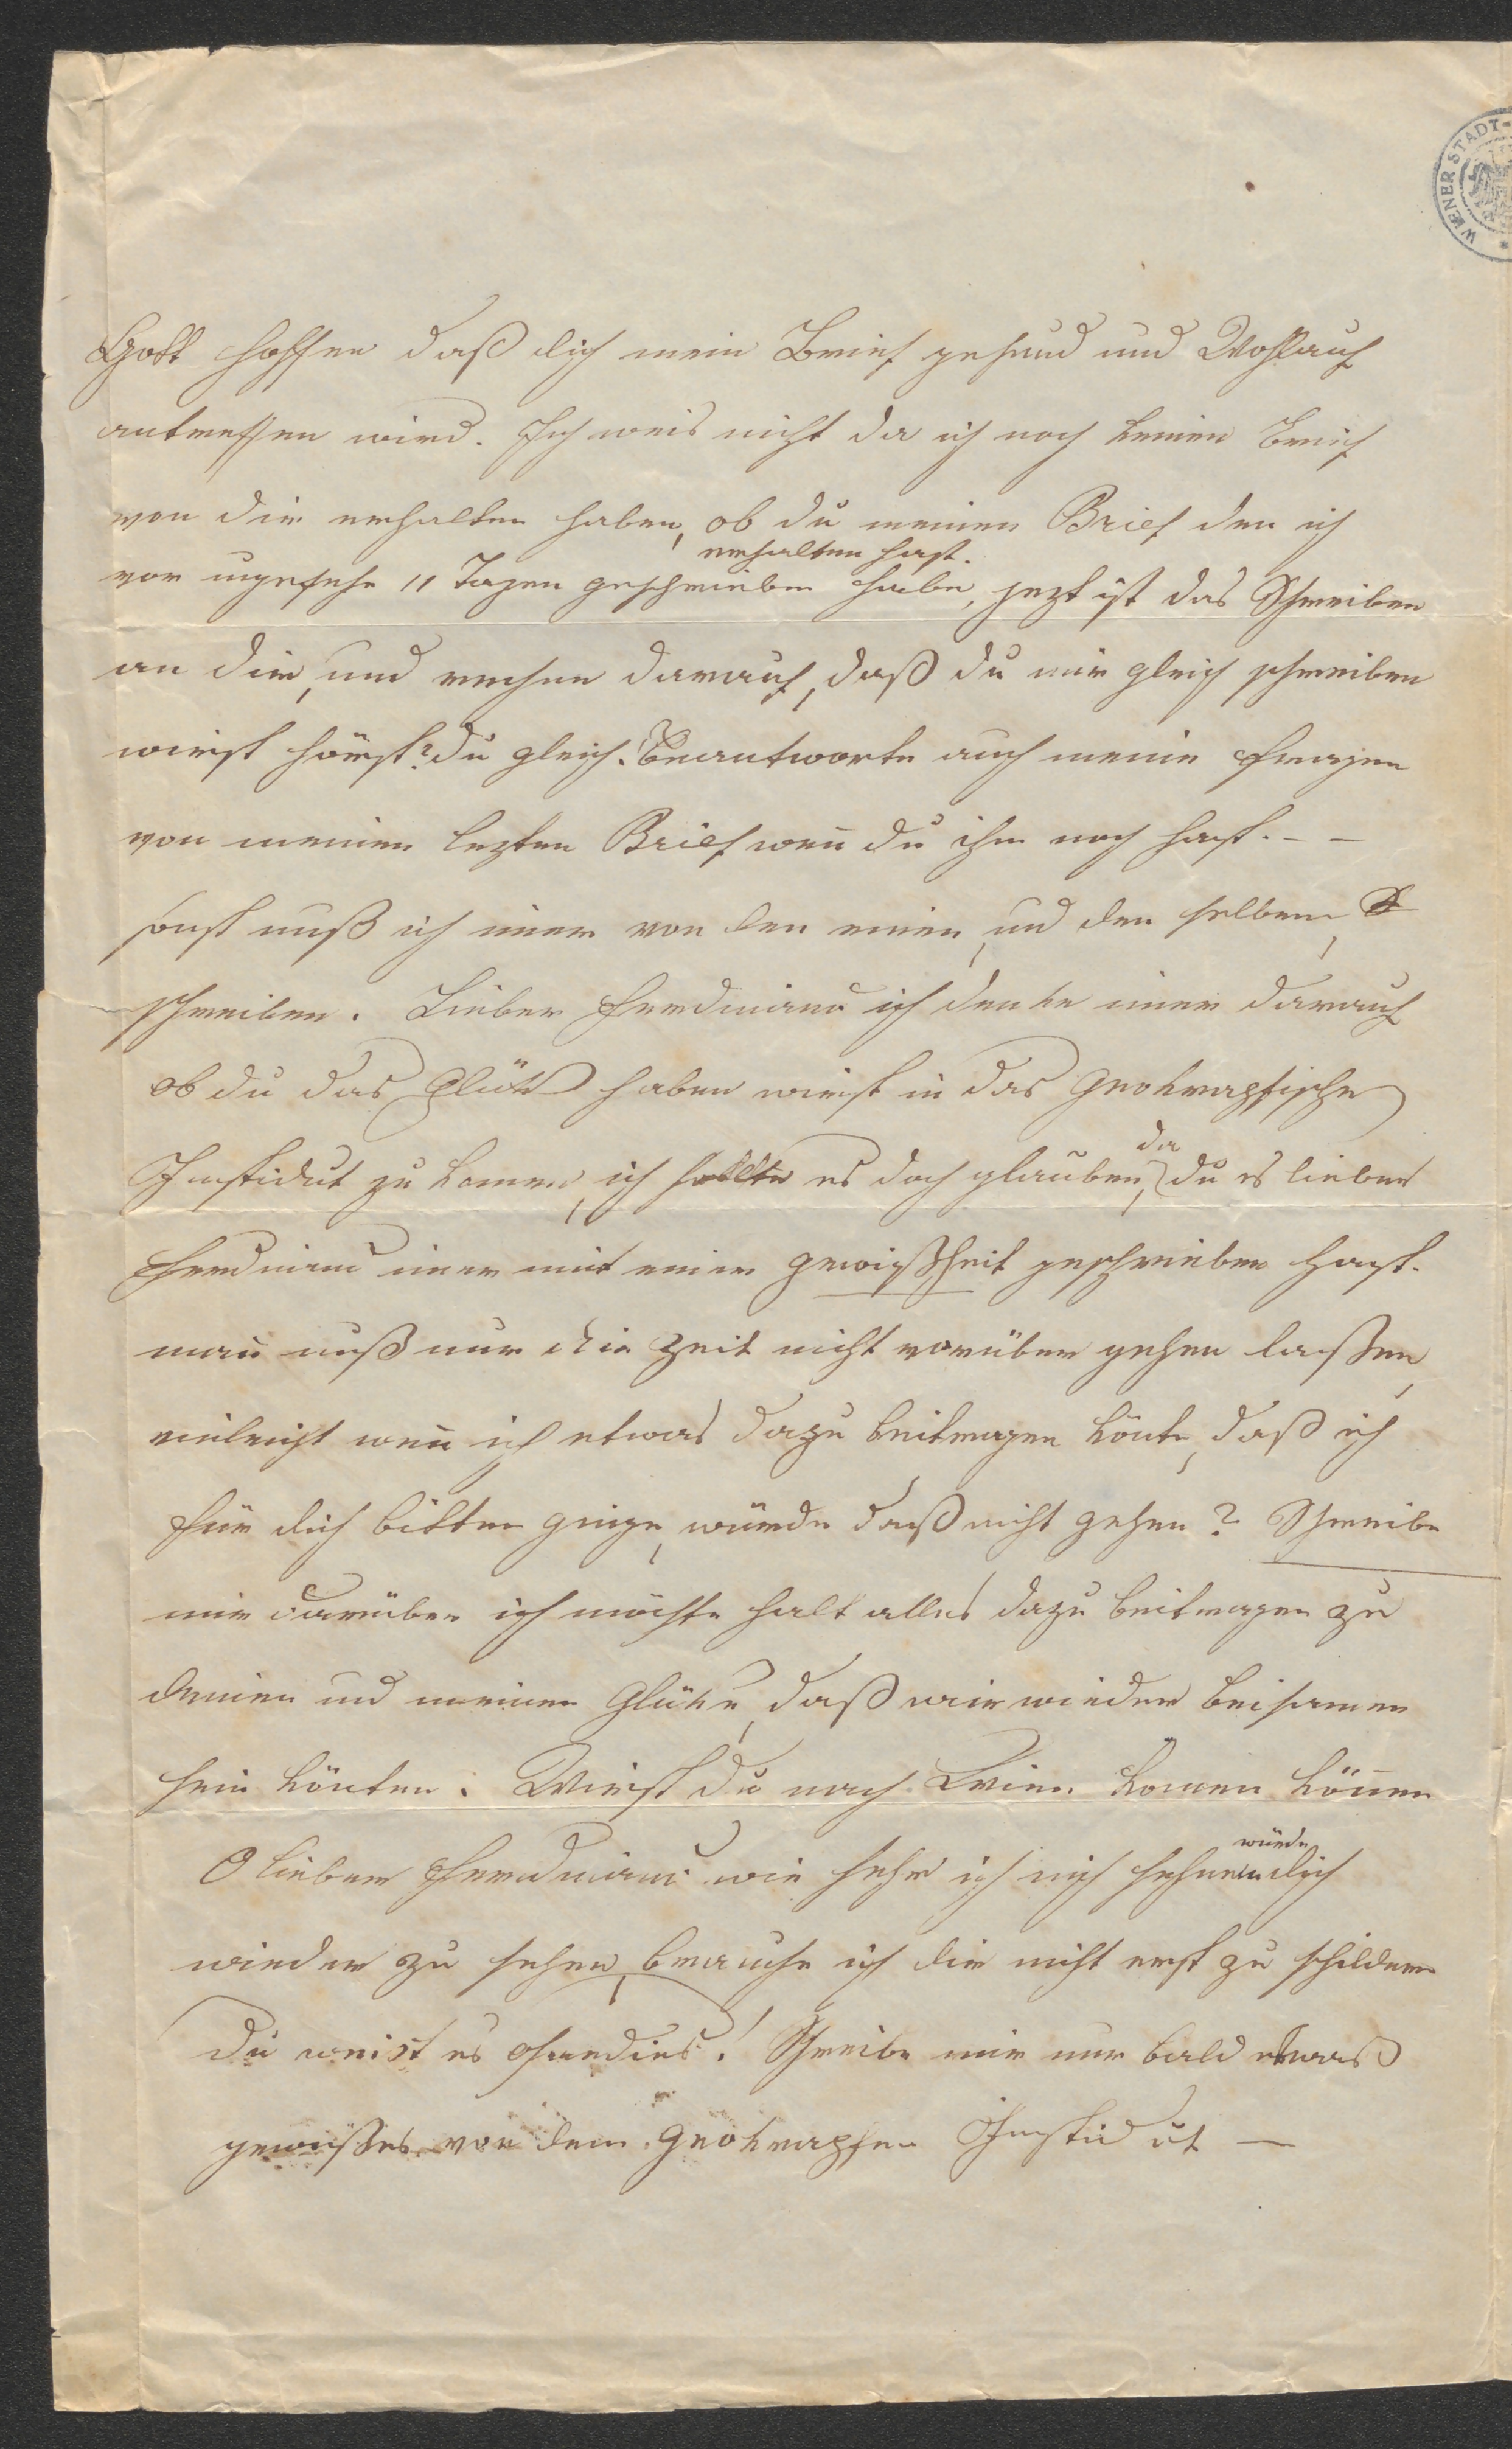 WIENER STADT-
Gott hoffen daß dich mein Brief gesund und Wohlauf
antreffen wird. Ich weis nicht da ich noch keinen Brief
von dir erhalten habe, ob du meinen Brief den ich
erhalten hast.
vor ungefehr 11 Tagen geschrieben habe, jezt ist das Schreiben
an dir, und rechne darauf, daß du mir gleich schreiben
wirst hörst? du gleich. Beantworte auch meine Fragen
von meinen lezten Brief weñ du ihn noch hast. – –
sonst muß ich imer von den einen, und den selben,
schreiben. Lieber Ferdinand ich denke imer darauf
ob du das Glük haben wirst in das Geokrapfische
Instidut zu komen, ich sollte es doch glauben, da du es lieber
Ferdinand imer mit einer gewißheit geschrieben hast.
mañ muß nur die Zeit nicht vorüber gehen laßen,
vieleicht weñ ich etwas dazu beitragen könte, daß ich
für dich bitten ginge, würde daß nicht gehen? Schreibe
mir darüber ich möchte halt alles dazu beitragen zu
deinen und meinen Glüke, daß wir wieder beisamen
sein könten. Wirst du nach Wien komen köñen
O lieber Ferdinand wie sehr ich mich sehnen würde dich
wieder zu sehen, brauche ich dir nicht erst zu schildern
du weist es ohnedies! Schreibe mir nur bald etwaß
gewißes von dem Geokrapfen Instidut —